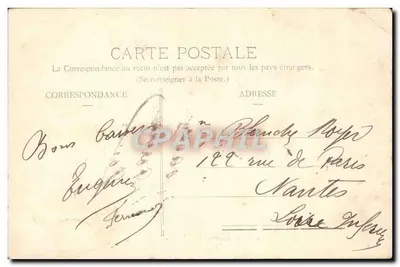 CARTE POSTALE
La Correspondance au recto n'est pas acceptée par tous les pays étrangers.
(Se renseigner à la Poste.)
CORRESPONDANCE
ADRESSE
Bons baisers
Eugénie
Fernand
Blanche Royer
122 rue de Paris
Nantes
Loire Infer
Cartorum